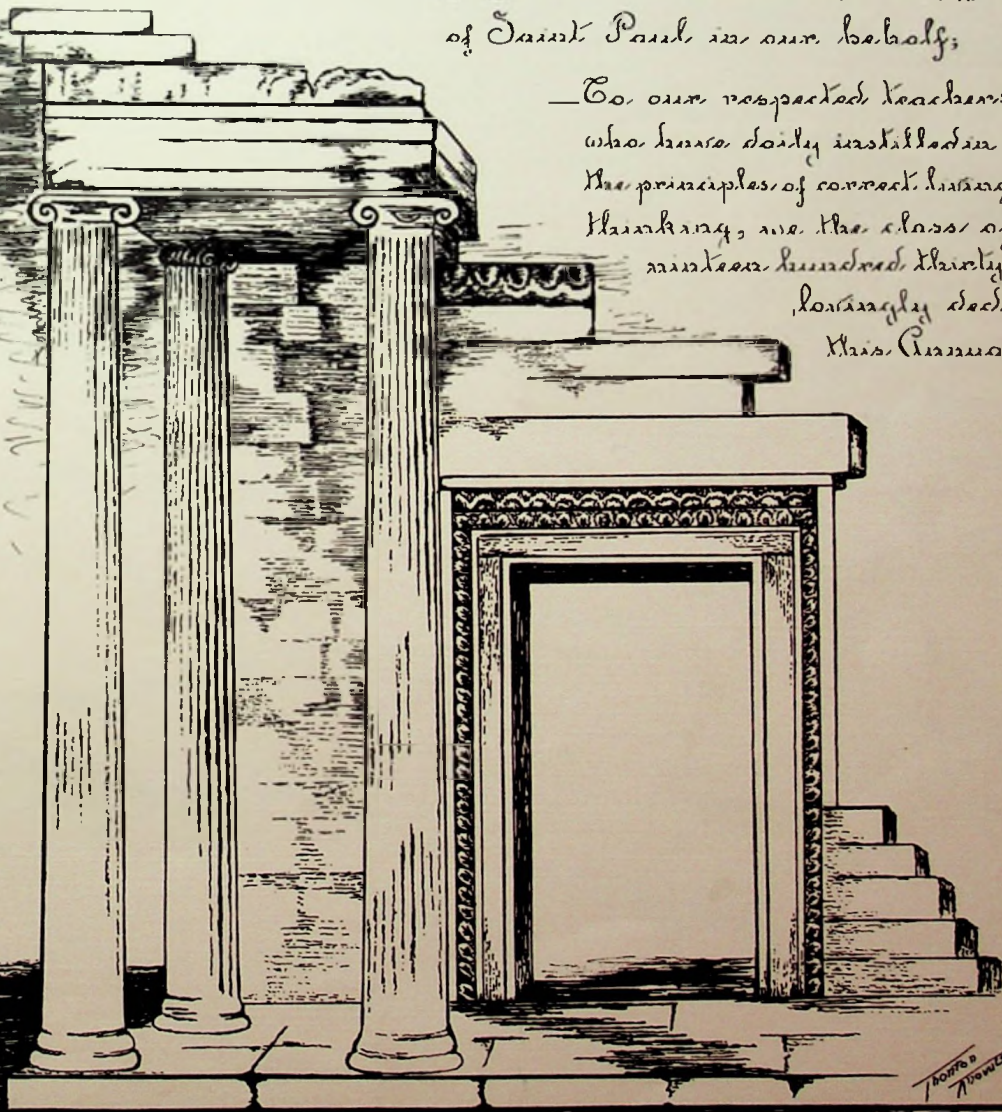 of Saint Paul in our behalf;
—To our respected teachers
who have daily instilled in
the principles of correct living
thinking, we the class o
nineteen hundred thirty
lovingly ded
this Annua